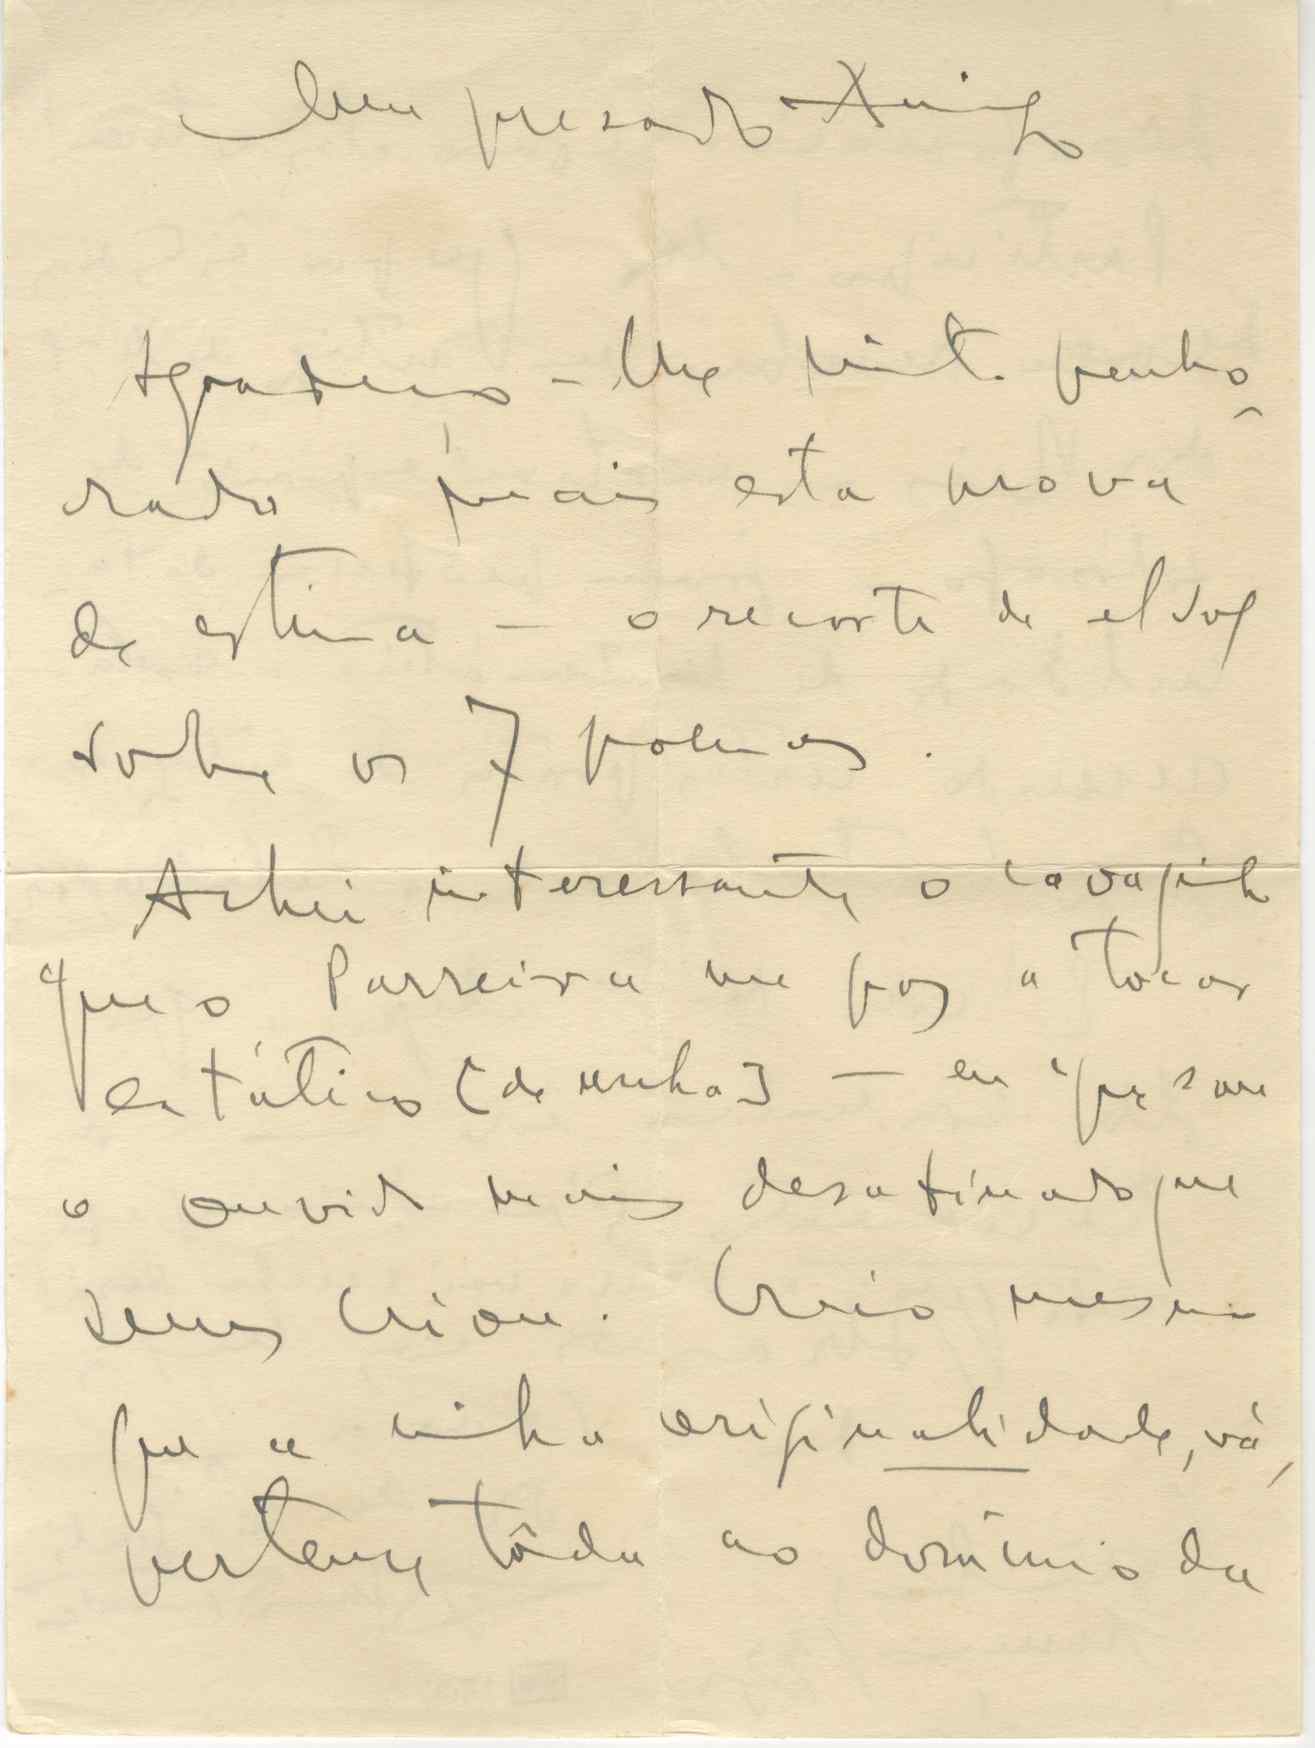 Meu presado Amigo
Agradeço-lhe muito penho-
rado mais esta prova
de estima — o recorte de el sol
sobre os 7 poemas.
Achei interessante o cavaquinho
que o Parreira me poz a tocar
estático [de unha] — em que sou
o ouvido mais desafinado que
Deus criou. Creio mesmo
que a minha originalidade, vá,
pertence tôda ao domínio da